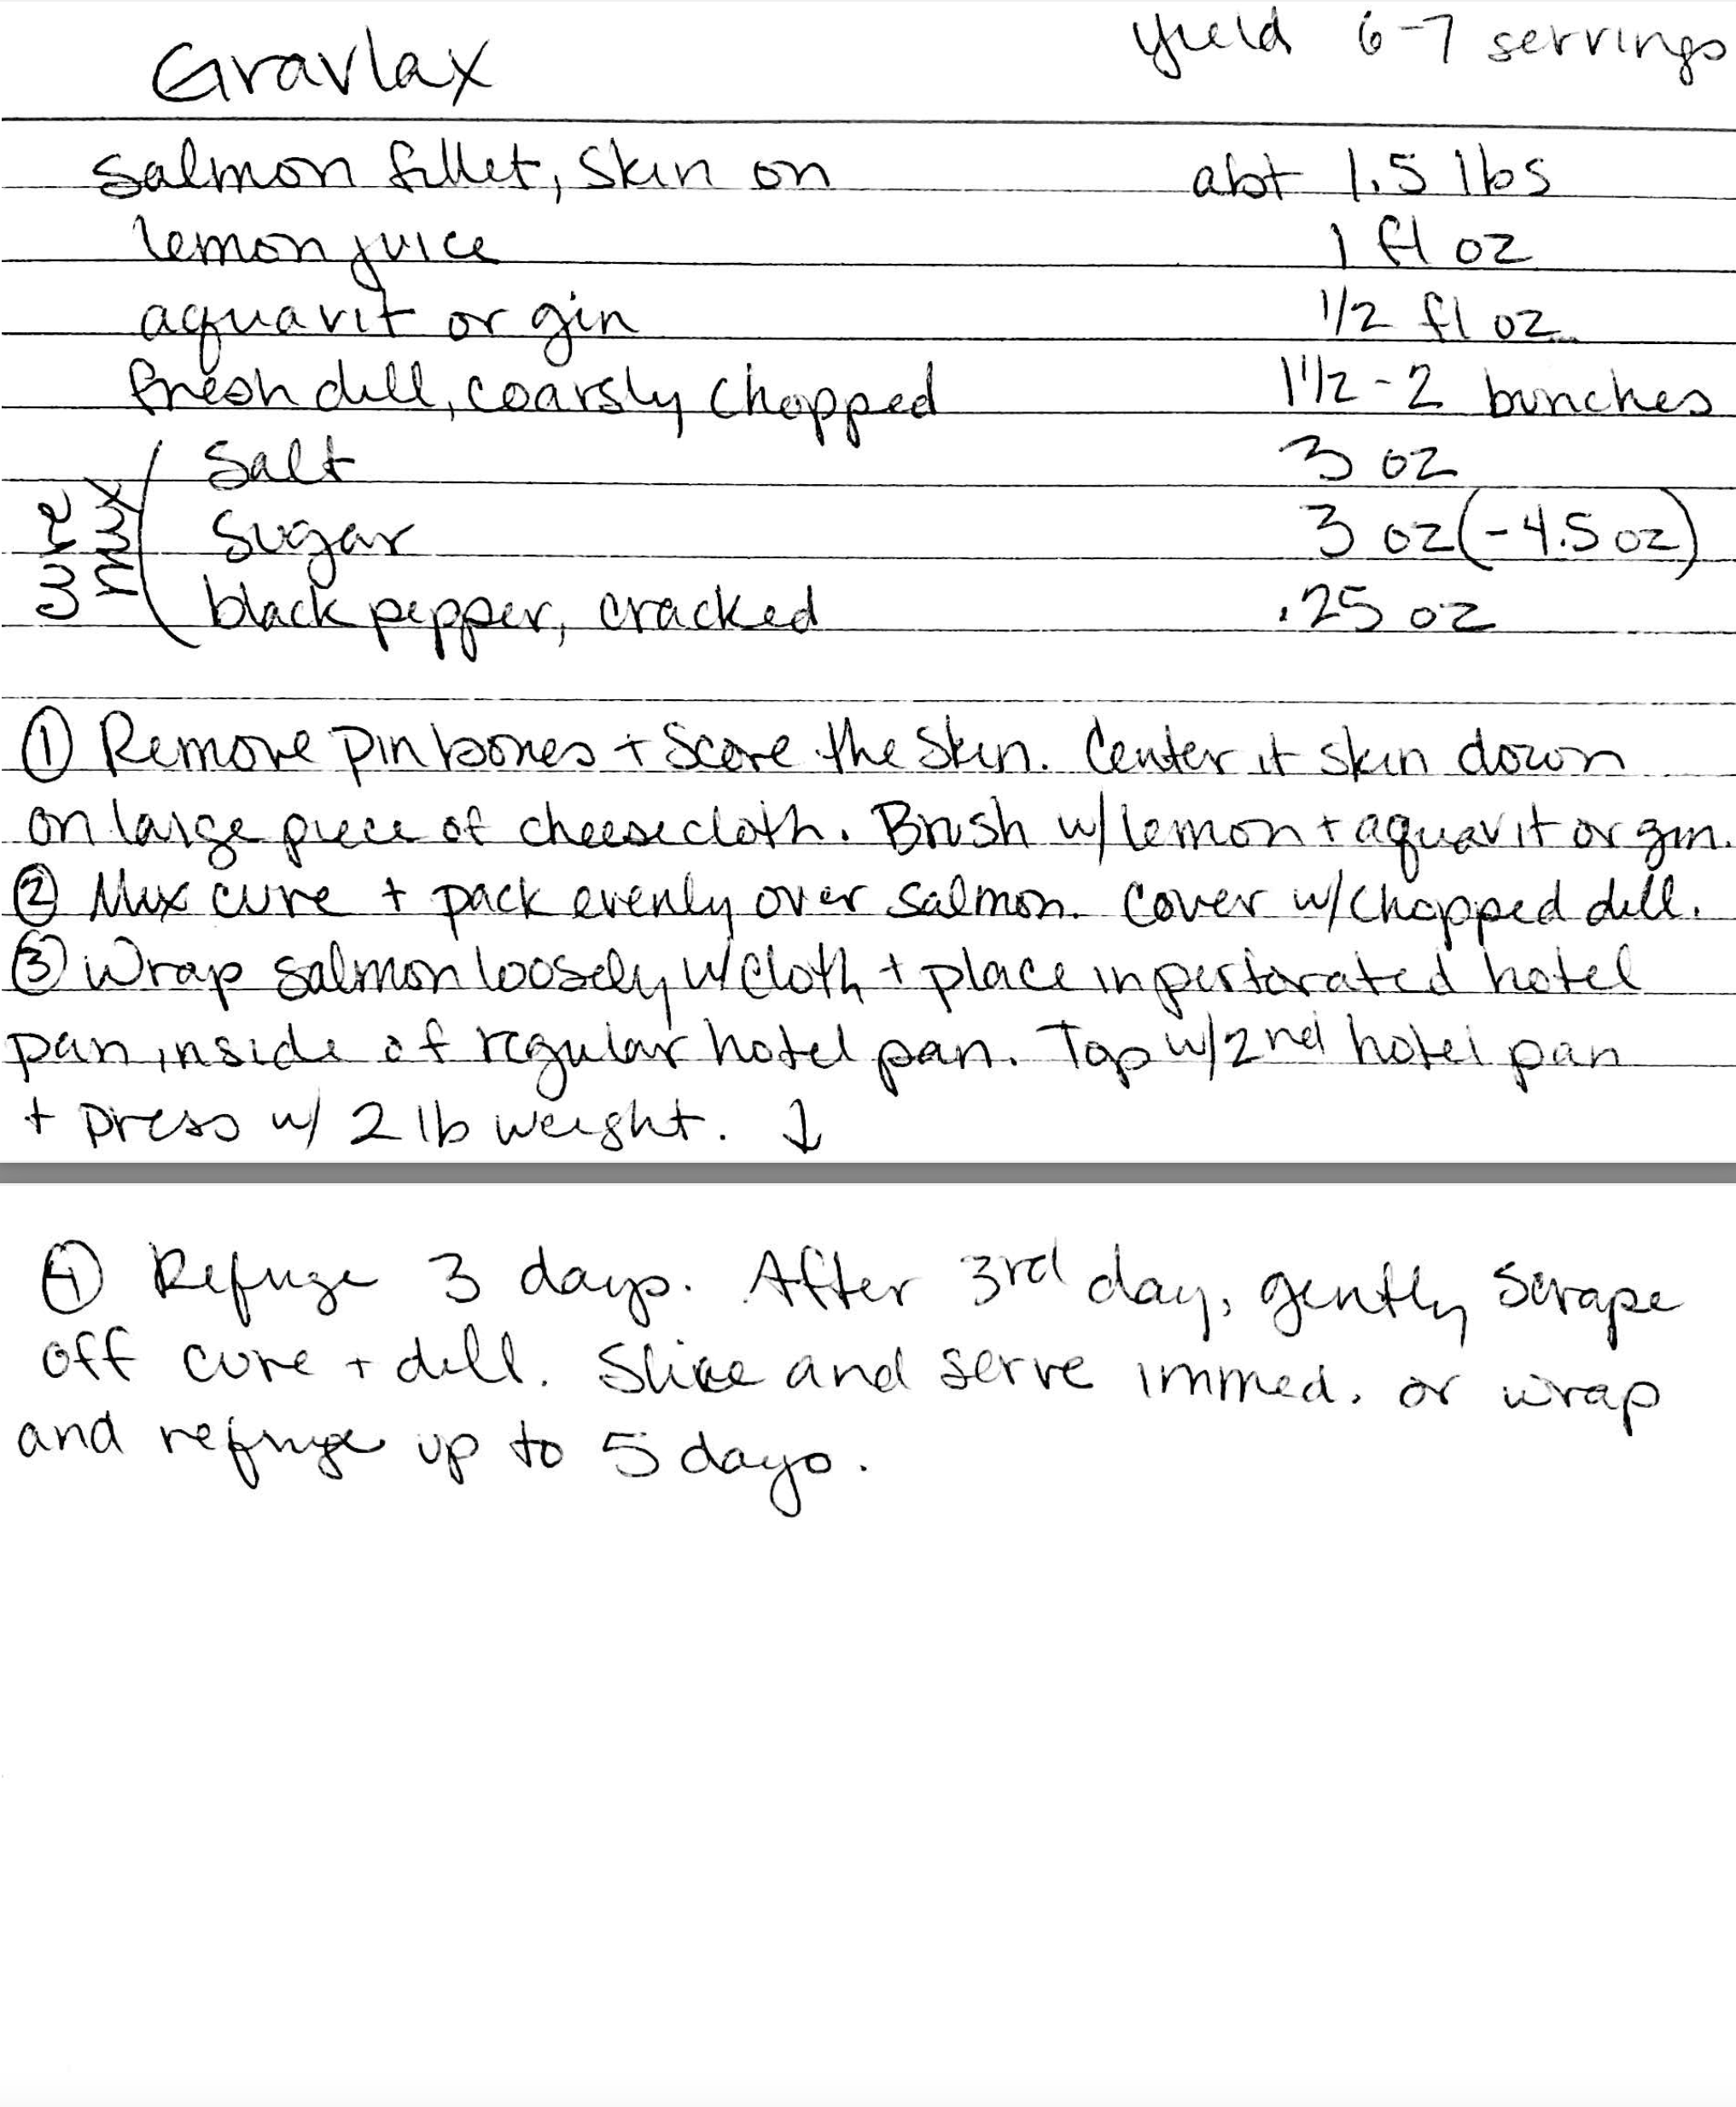 Gravlax yield 6-7 servings
Salmon fillet, skin on abt 1.5 lbs
lemon juice 1 fl oz
aquavit or gin 1/2 fl oz
fresh dill, coarsly chopped 1 1/2 - 2 bunches
cure mix
salt 3 oz
sugar 3 oz (-4.5 oz)
black pepper, cracked .25 oz
① Remove pin bones + Score the skin. Center it skin down
on large piece of cheesecloth. Brush w/ lemon + aquavit or gin.
② Mix cure + pack evenly over salmon. Cover w/ chopped dill.
③ Wrap salmon loosely w/ cloth + place in perforated hotel
pan inside of regular hotel pan. Top w/ 2nd hotel pan
+ press w/ 2 lb weight. ↓
④ Refrige 3 days. After 3rd day, gently scrape
off cure + dill. Slice and serve immed. or wrap
and refrige up to 5 days.